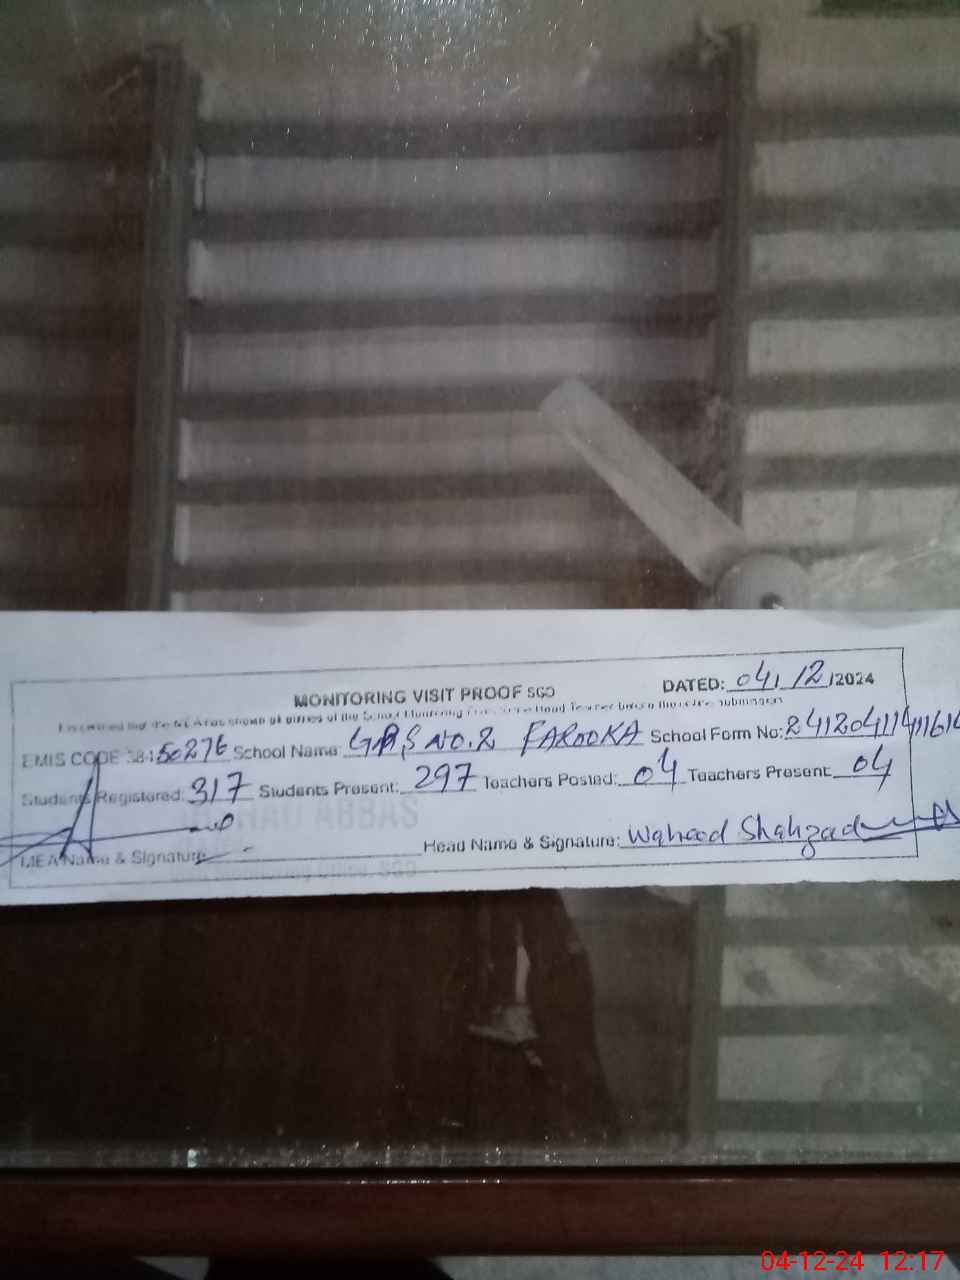 MONITORING VISIT PROOF SGD
DATED: 04/12/2024
EMIS CODE 384 50276 School Name: GPS NO.2 FAROOKA School Form No: 2412041141161
Students Registered: 317 Students Present: 297 Teachers Posted: 04 Teachers Present: 04
ABBAS
MEA Name & Signature Head Name & Signature: Waheed Shahzad
04-12-24 12:17